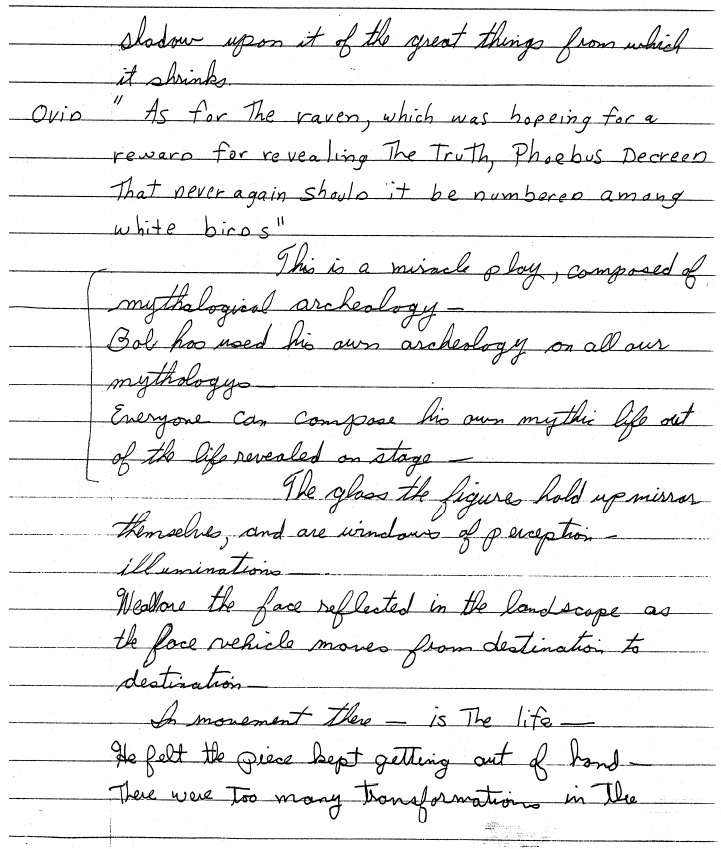 shadow upon it of the great things from which
it shrinks.
Ovid " As for The raven, which was hopeing for a
reward for revealing The Truth, Phoebus Decreed
That never again should it be numbered among
white birds"
This is a miracle play, composed of
mythalogical archeology —
Bob has used his own archeology on all our
mythologys —
Everyone can compose his own mythic life out
of the life revealed on stage —
The glass the figures hold up mirror
themselves, and are windows of perception —
illuminations —
the face reflected in the landscape as
the face vehicle moves from destination to
destination —
In movement there — is The life —
He felt the piece kept getting out of hand —
There were Too many transformations in The